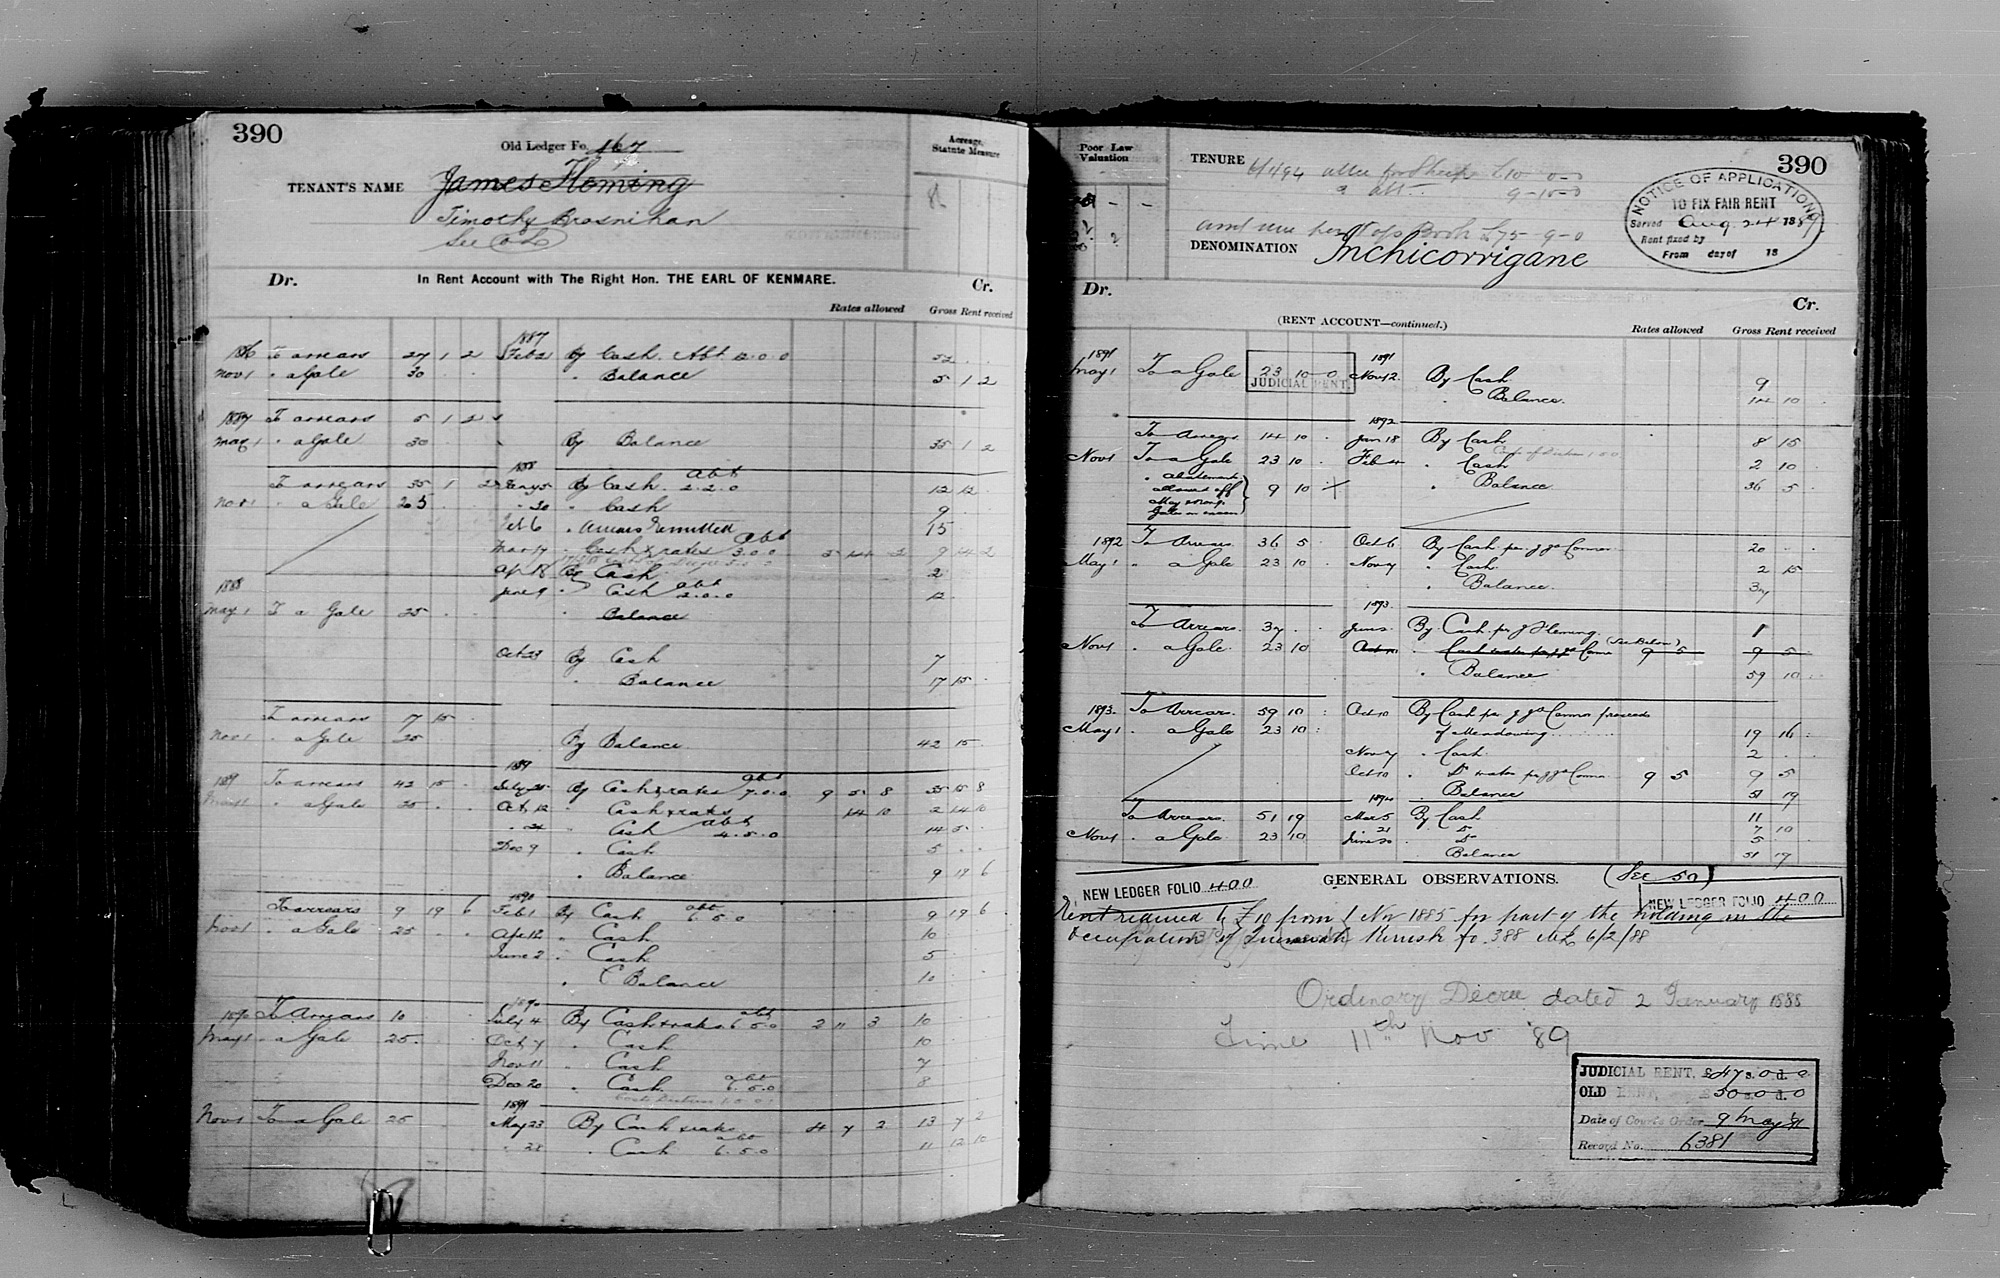 390
Old Ledger Fo. 167
Acreage, Statute Measure
TENANT'S NAME James Fleming
Timothy Brosnihan
See
Dr. In Rent Account with The Right Hon. THE EARL OF KENMARE. Cr.
Rates allowed Gross Rent received
1887
1886 To arrears 27 1 2 Feb 2 By Cash Abt 12.0.0 52 . .
Nov 1 " a Gale 30 . . " Balance 5 1 2
1887 To arrears 5 1 2
May 1 " a Gale 30 . . By Balance 35 1 2
1888
To arrears 35 1 2 Jany 5 By Cash abt 2.2.0 12 12 .
Nov 1 " a Gale 25 " 30 " Cash 9
Feb 6 " Arrears remitted 15
Mar 19 " Cash & rates abt 3.0.0 5 14 2 9 14 2
Apr 18 By Cash 2
1888 June 9 " Cash abt 2.0.0 12
May 1 To a Gale 25 . . " Balance
Oct 23 By Cash 7
" Balance 17 15 .
To arrears 17 15 .
Nov 1 " a Gale 25 By Balance 42 15 .
1889
1889 To arrears 42 15 . July 25 By Cash & rates abt 7.0.0 9 5 8 35 15 8
May 1 " a Gale 25 . . Oct 12 " Cash & rates 14 10 2 14 10
" Cash abt 4.5.0 14 5 .
Dec 9 " Cash 5 . .
" Balance 9 19 6
1890
To arrears 9 19 6 Feb 1 By Cash abt 6.5.0 9 19 6
Nov 1 " a Gale 25 . . Apr 12 " Cash 10
June 2 " Cash 5
" Balance 10
1890
1890 To Arrears 10 July 4 By Cash & rates abt 6.5.0 2 11 3 10
May 1 " a Gale 25 . Oct 7 " Cash 10
Nov 11 " Cash 7
Dec 20 " Cash abt 6.5.0 8
1891
Nov 1 To a Gale 25 May 23 By Cash & rates 4 7 2 13 7 2
" 28 " Cash abt 6.5.0 11 12 10
Poor Law Valuation
TENURE 6/4/94 10-0-0
9-10-0
390
NOTICE OF APPLICATION
TO FIX FAIR RENT
Served Aug 24 1889
Rent fixed by
From day of 18
Book £75-9-0
DENOMINATION Inchicorrigane
Dr. Cr.
(RENT ACCOUNT—continued.) Rates allowed Gross Rent received
1891 1891
May 1 To a Gale 23 10-0 Nov 12 By Cash 9
JUDICIAL RENT.
" Balance 14 10 .
1892
To Arrears 14 10 . Jan 18 By Cash 8 15
Nov 1 To a Gale 23 10 . Feb 4 " Cash 2 10
" abatements allowed off May & Nov. Gales in error 9 10 " Balance 36 5 .
1892 To Arrears 36 5 . Oct 6 By Cash per J. J. O'Connor 20 . .
May 1 " a Gale 23 10 . Nov 7 " Cash 2 15
" Balance 37
1893
To Arrears 37 . . June 2 By Cash per J Fleming 1
(See Below)
Nov 1 " a Gale 23 10 " Cash 9 5 9 5
" Balance 59 10
1893 To Arrears 59 10 : Oct 10 By Cash per J J O'Connor proceeds
May 1 " a Gale 23 10 : of Meadowing 19 16 :
Nov 7 " Cash 2 .
Oct 10 " Do rates per J J O'Connor 9 5 9 5
" Balance 51 19
1894
To Arrears 51 19 Mar 5 By Cash 11
21 Do 7 10
Nov 1 " a Gale 23 10 June 20 Do 5
Balance 51 19
NEW LEDGER FOLIO 400 GENERAL OBSERVATIONS. (See 50)
NEW LEDGER FOLIO 400
Rent reduced by £10 from 1 Nov 1885 for part of the holding in the
occupation of Jeremiah Kerrisk fo. 388 6/2/88
Ordinary Decree dated 2 January 1888
Time 11th Nov '89
JUDICIAL RENT, £47 s. 0 d. 0
OLD RENT, £50-0-0
Date of Court's Order 9 May 91
Record No. 6381